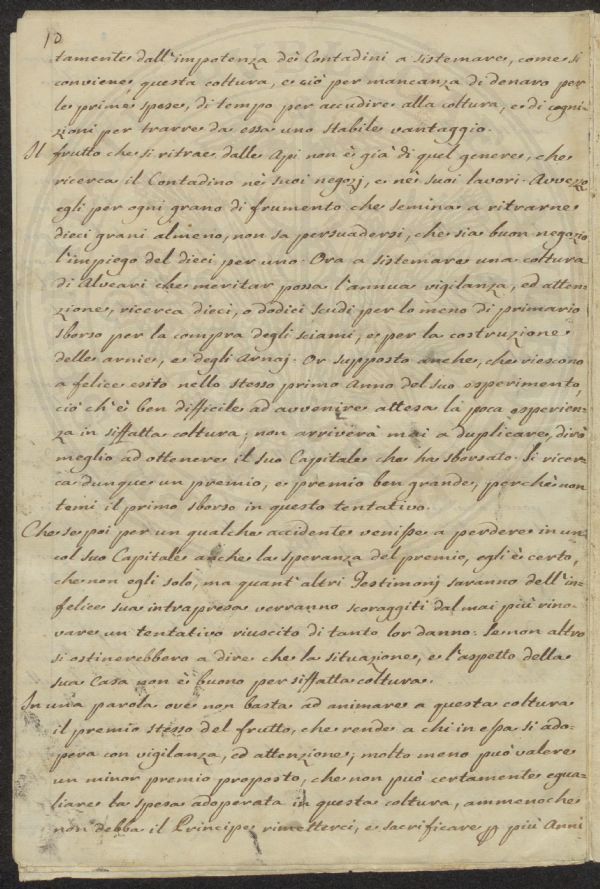 10
tamente dall'impotenza de' Contadini a sistemare, come si
conviene questa coltura, e ciò per mancanza di denaro per
le prime spese, di tempo per accudire alla coltura, e di cogni-
zioni per trarre da essa uno stabile vantaggio.
Il frutto che si ritrae dalle Api non è già di quel genere, che
ricerca il Contadino nè suoi negozj, e nè suoi lavori. Avvezzo
egli per ogni grano di frumento che semina a ritrarne
dieci grani almeno, non sa persuadersi, che sia buon negozio
l'impiego del dieci per uno. Ora a sistemare una coltura
di Alveari che meritar possa l'annua vigilanza, ed atten-
zione, ricerca dieci, o dodici scudi per lo meno di primario
sborso per la compra degli sciami, e per la costruzione
delle arnie, e degli Arnaj. Or supposto anche, che riescono
a felice esito nello stesso primo Anno del suo esperimento,
ciò ch'è ben difficile ad avvenire attesa la poca esperien-
za in siffatta coltura, non arriverà mai a duplicare, dirò
meglio ad ottenere il suo Capitale che ha sborsato. Si ricer-
ca dunque un premio, e premio ben grande, perchè non
temi il primo sborso in questo tentativo.
Che se poi per un qualche accidente venisse a perdere in un
col suo Capitale anche la speranza del premio, egli è certo,
che non egli solo, ma quant'altri Testimonj saranno dell'in-
felice sua intrapresa verranno scoraggiti dal mai più rino-
vare un tentativo riuscito di tanto lor danno. Se non altro
si ostinerebbero a dire che la situazione, e l'aspetto della
sua Casa non è buono per siffatta coltura.
In una parola ove non basta ad animare a questa coltura
il premio stesso del frutto, che rende a chi in essa si ado-
pera con vigilanza, ed attenzione, molto meno può valere
un minor premio proposto, che non può certamente egua-
liare la spesa adoperata in questa coltura, ammenochè
non debba il Principe rimetterci, e sacrificare p più Anni